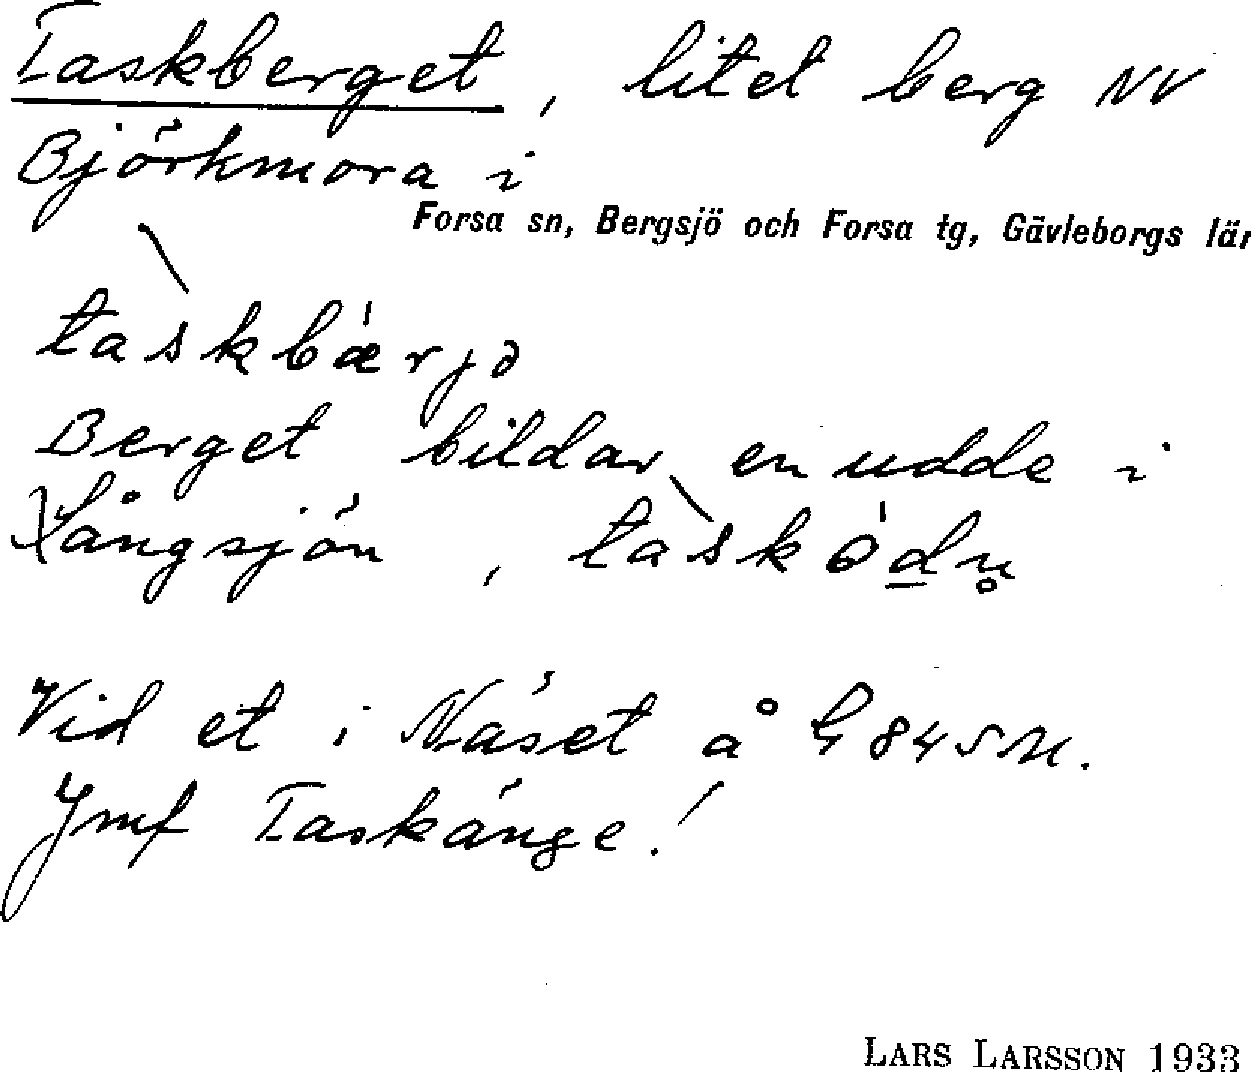 Taskberget, litet berg NV
Björkmora i
Forsa sn, Bergsjö och Forsa tg, Gävleborgs län
tàskbǽrjə
Berget bildar en udde i
Långsjön, tàskódn̥
Vid et i Näset å G 845 M.
Jmf Taskänge!
LARS LARSSON 1933